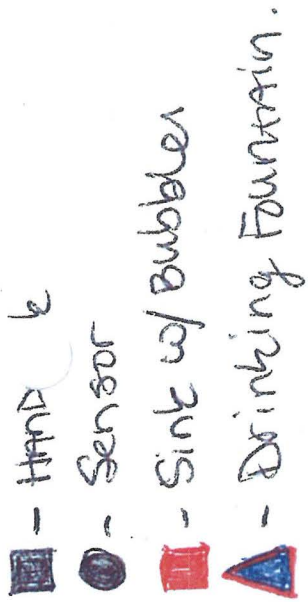 - Hand &
- Sensor
- Sink w/ Bubbler
- Drinking Fountain.